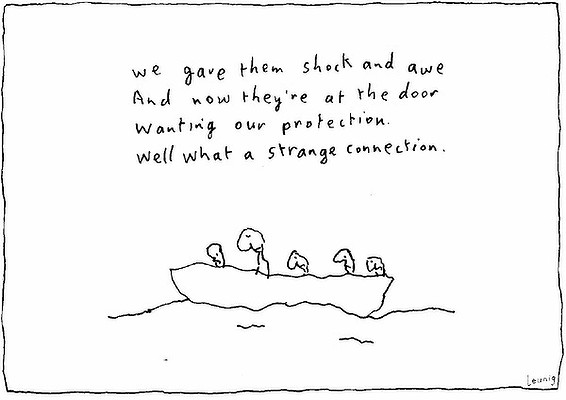 we gave them shock and awe
And now they're at the door
Wanting our protection.
Well what a strange connection.
Leunig